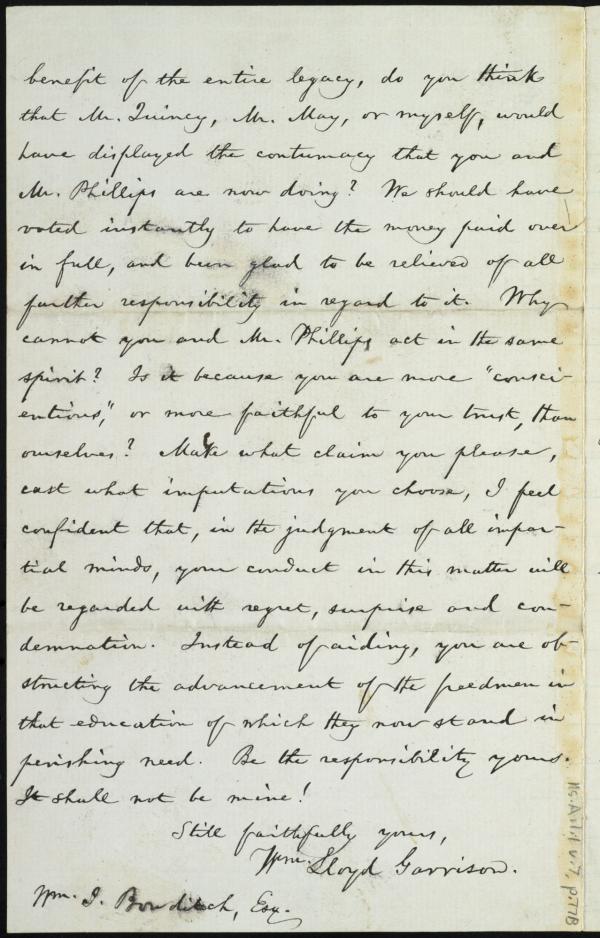 benefit of the entire legacy, do you think
that Mr. Quincy, Mr. May, or myself, would
have displayed the contumacy that you and
Mr. Phillips are now doing? We should have
voted instantly to have the money paid over
in full, and been glad to be relieved of all
further responsibility in regard to it. Why
cannot you and Mr. Phillips act in the same
spirit? Is it because you are more "consci-
entious," or more faithful to your trust, than
ourselves? Make what claim you please,
cast what imputations you choose, I feel
confident that, in the judgment of all impar-
tial minds, your conduct in this matter will
be regarded with regret, surprise and con-
demnation. Instead of aiding, you are ob-
structing the advancement of the freedmen in
that education of which they now stand in
perishing need. Be the responsibility yours.
It shall not be mine!
Still faithfully yours,
Wm. Lloyd Garrison.
Wm. I. Bowditch, Esq.
Ms. A.1.1 v.7, p.77B